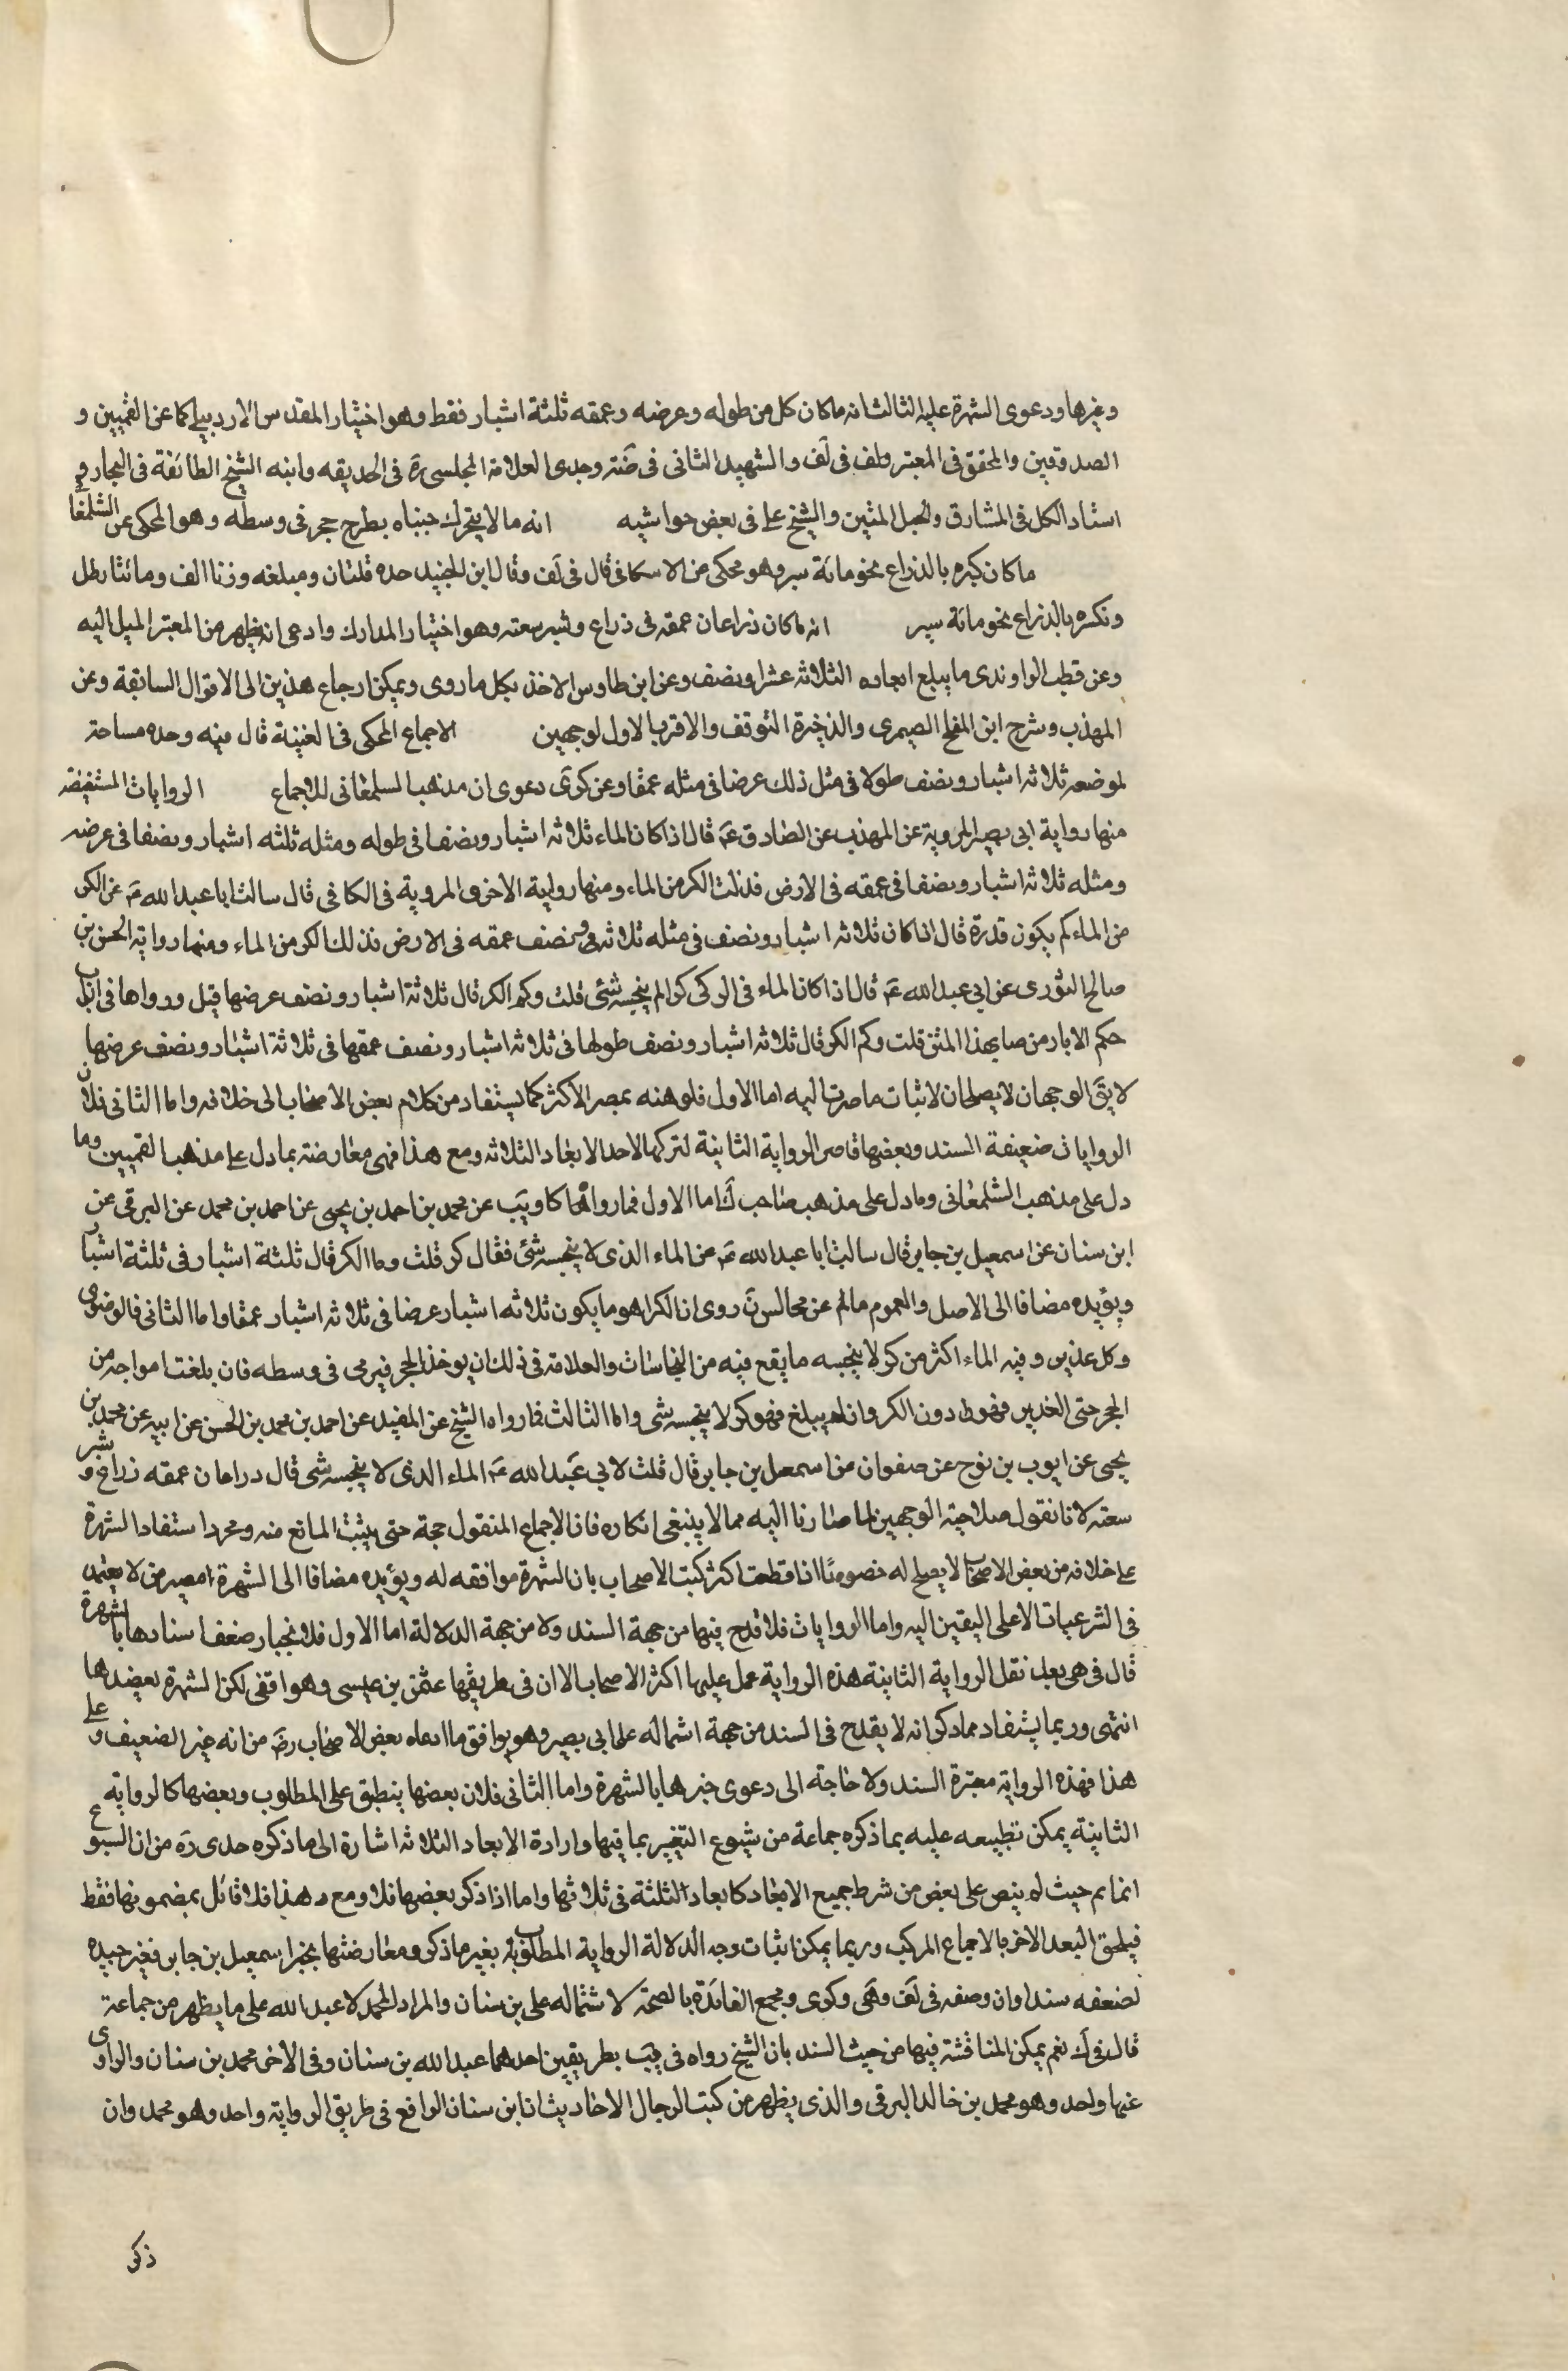 وغيرها ودعوى الشهرة عليه الثالث انه ما كان كل من طوله وعرضه وعمقه ثلثة اشبار فقط وهو اختيار المقدس الاردبيلي كما عن القميين و
الصدوقين والمحقق في المعتبر ولف في لف والشهيد الثاني في ضته وجدى العلامة المجلسى ره في الحديقه وابنه الشيخ الطائفة في البحار و
استاد الكل في المشارق والحبل المتين والشيخ على في بعض حواشيه انه ما لا يتحرك جنباه بطرح حجر في وسطه وهو المحكى عن الشلمغا
ما كان كبره بالذراع نحو مائة سبر وهو محكى من الاسكافى قال في لف وقال ابن الجنيد حده قلتان ومبلغه وزنا الف ومائتا رطل
ونكسره بالذراع نحو مائة سبر انه ما كان ذراعان عمقه في ذراع وشبر سعته وهو اختيار المدارك وادعى انه يظهر من المعتبر الميل اليه
وعن قطب الراوندى ما يبلغ ابعاده الثلاثه عشرا ونصف وعن ابن طاوس الاخذ بكل ما روى ويمكن ارجاع هذين الى الاقوال السابقة وعن
المهذب وشرح ابن المفلح الصيمرى والذخيرة التوقف والاقرب الاول لوجهين الاجماع المحكى في الغنيته قال فيه وحده مساحة
لموضعه ثلاثه اشبار ونصف طولا في مثل ذلك عرضا في مثله عمقا وعن كرى دعوى ان مذهب الشلمغانى للاجماع الروايات المستفيضه
منها رواية ابى بصير المروية عن المهذب عن الصادق ع قال اذا كان الماء ثلاثه اشبار ونصفا في طوله ومثله ثلثه اشبار ونصفا في عرضه
ومثله ثلاثه اشبار ونصفا في عمقه في الارض فذلك الكر من الماء ومنها رواية الاخرى المروية في الكافي قال سالت ابا عبد الله ع عن الكر
من الماء كم يكون قدره قال اذا كان ثلاثه اشبار ونصف في مثله ثلاثه في ونصف عمقه في الارض فذلك الكر من الماء ومنها رواية الحسن بن
صالح الثورى عن ابي عبد الله ع قال اذا كان الماء في الركى كرا لم ينجسه شئ قلت وكم الكر قال ثلاثة اشبار ونصف عرضها قيل ورواها في ابواب
حكم الابار من صا بهذا المتن قلت وكم الكر قال ثلاثه اشبار ونصف طولها في ثلاثه اشبار ونصف عمقها في ثلاثة اشبار ونصف عرضها
لا يق الوجهان لا يصلحان لاثبات ما صرت اليه اما الاول فلوهنه بمصير الاكثر كما يستفاد من كلام بعض الاصحاب الى خلافه واما الثانى فلان
الروايات ضعيفة السند وبعضها قاصر الرواية الثانية لتركها لاحد الابعاد الثلاثه ومع هذا فهى معارضة بما دل على مذهب القميين وما
دل على مذهب الشلمغانى وما دل على مذهب صاحب ك اما الاول فما رواه كا ويب عن محمد بن احمد بن يحيى عن احمد بن محمد عن البرقى عن
ابن سنان عن اسمعيل بن جابر قال سالت ابا عبد الله ع عن الماء الذى لا ينجسه شئ فقال كر قلت وما الكر قال ثلثة اشبار في ثلثة اشبار
ويؤيده مضافا الى الاصل والعموم ما لم عن مجالس ن روى ان الكر هو ما يكون ثلاثه اشبار عرضا في ثلاثه اشبار عمقا واما الثانى فالرضوى
وكل غدير وفيه الماء اكثر من كر لا ينجسه ما يقع فيه من النجاسات والعلامة في ذلك ان يوخذ الحجر فيرمى في وسطه فان بلغت امواجه من
الحجر حتى الغدير فهو دون الكر وان لم يبلغ فهو كر لا ينجسه شى واما الثالث فما رواه الشيخ عن المفيد عن احمد بن محمد بن الحسن عن ابيه عن محمد بن
يحيى عن ايوب بن نوح عن صفوان عن اسمعيل بن جابر قال قلت لابي عبد الله ع الماء الذى لا ينجسه شى قال ذراعان عمقه ذراع وشبر
سعته لانا نقول صلاحية الوجهين لما صارنا اليه مما لا ينبغى انكاره فان الاجماع المنقول حجة حتى يثبت المانع منه ومجرد استفاد الشهرة
على خلافه من بعض الاصحاب لا يصلح له خصوصا اذا قطعت اكثر كتب الاصحاب بان الشهرة موافقه له ويؤيده مضافا الى الشهرة مصير من لا يعتمد
في الشرعيات الا على اليقين اليه واما الروايات فلا قدح فيها من جهة السند ولا من جهة الدلالة اما الاول فلانجبار ضعف اسنادها بالشهرة
قال في هى بعد نقل الرواية الثانية هذه الرواية عمل عليها اكثر الاصحاب الا ان في طريقها عثمن بن عيسى وهو واقفى لكن الشهرة تعضدها
انتهى وربما يستفاد مما ذكر انه لا يقدح في السند من جهة اشماله على ابى بصير وهو يوافق ما ادعاه بعض الاصحاب رض من انه غير الضعيف وعلى
هذا فهذه الرواية معتبرة السند ولا حاجة الى دعوى جبرها بالشهرة واما الثانى فلان بعضها ينطبق على المطلوب وبعضها كالرواية
الثانية يمكن تطبيعه عليه بما ذكره جماعة من شيوع التعبير بما فيها وارادة الابعاد الثلاثه اشارة الى ما ذكره جدى ره من ان الشيوع
انما يم حيث لم ينص على بعض من شرط جميع الابعاد كابعاد الثلثة في ثلاثها واما اذا ذكر بعضها فلا ومع هذا فلا قائل بمضمونها فقط
فيلحق البعد الاخر بالاجماع المركب وربما يمكن اثبات وجه الدلالة الرواية المطلوبة بغير ما ذكر ومعارضتها بخبر اسمعيل بن جابر فغير جيده
لضعفه سندا وان وصفه في لف وهى وكرى ومجمع الفائدة بالصحة لاشتماله على بن سنان والمراد المحمد لا عبد الله على ما يظهر من جماعة
قال في ك نعم يمكن المناقشة فيها من حيث السند بان الشيخ رواه في يب بطريقين احدهما عبد الله بن سنان وفي الاخر محمد بن سنان والراوى
عنها واحد وهو محمد بن خالد البرقى والذى يظهر من كتب الرجال الاحاديث ان ابن سنان الواقع في طريق الرواية واحد وهو محمد وان
ذكر